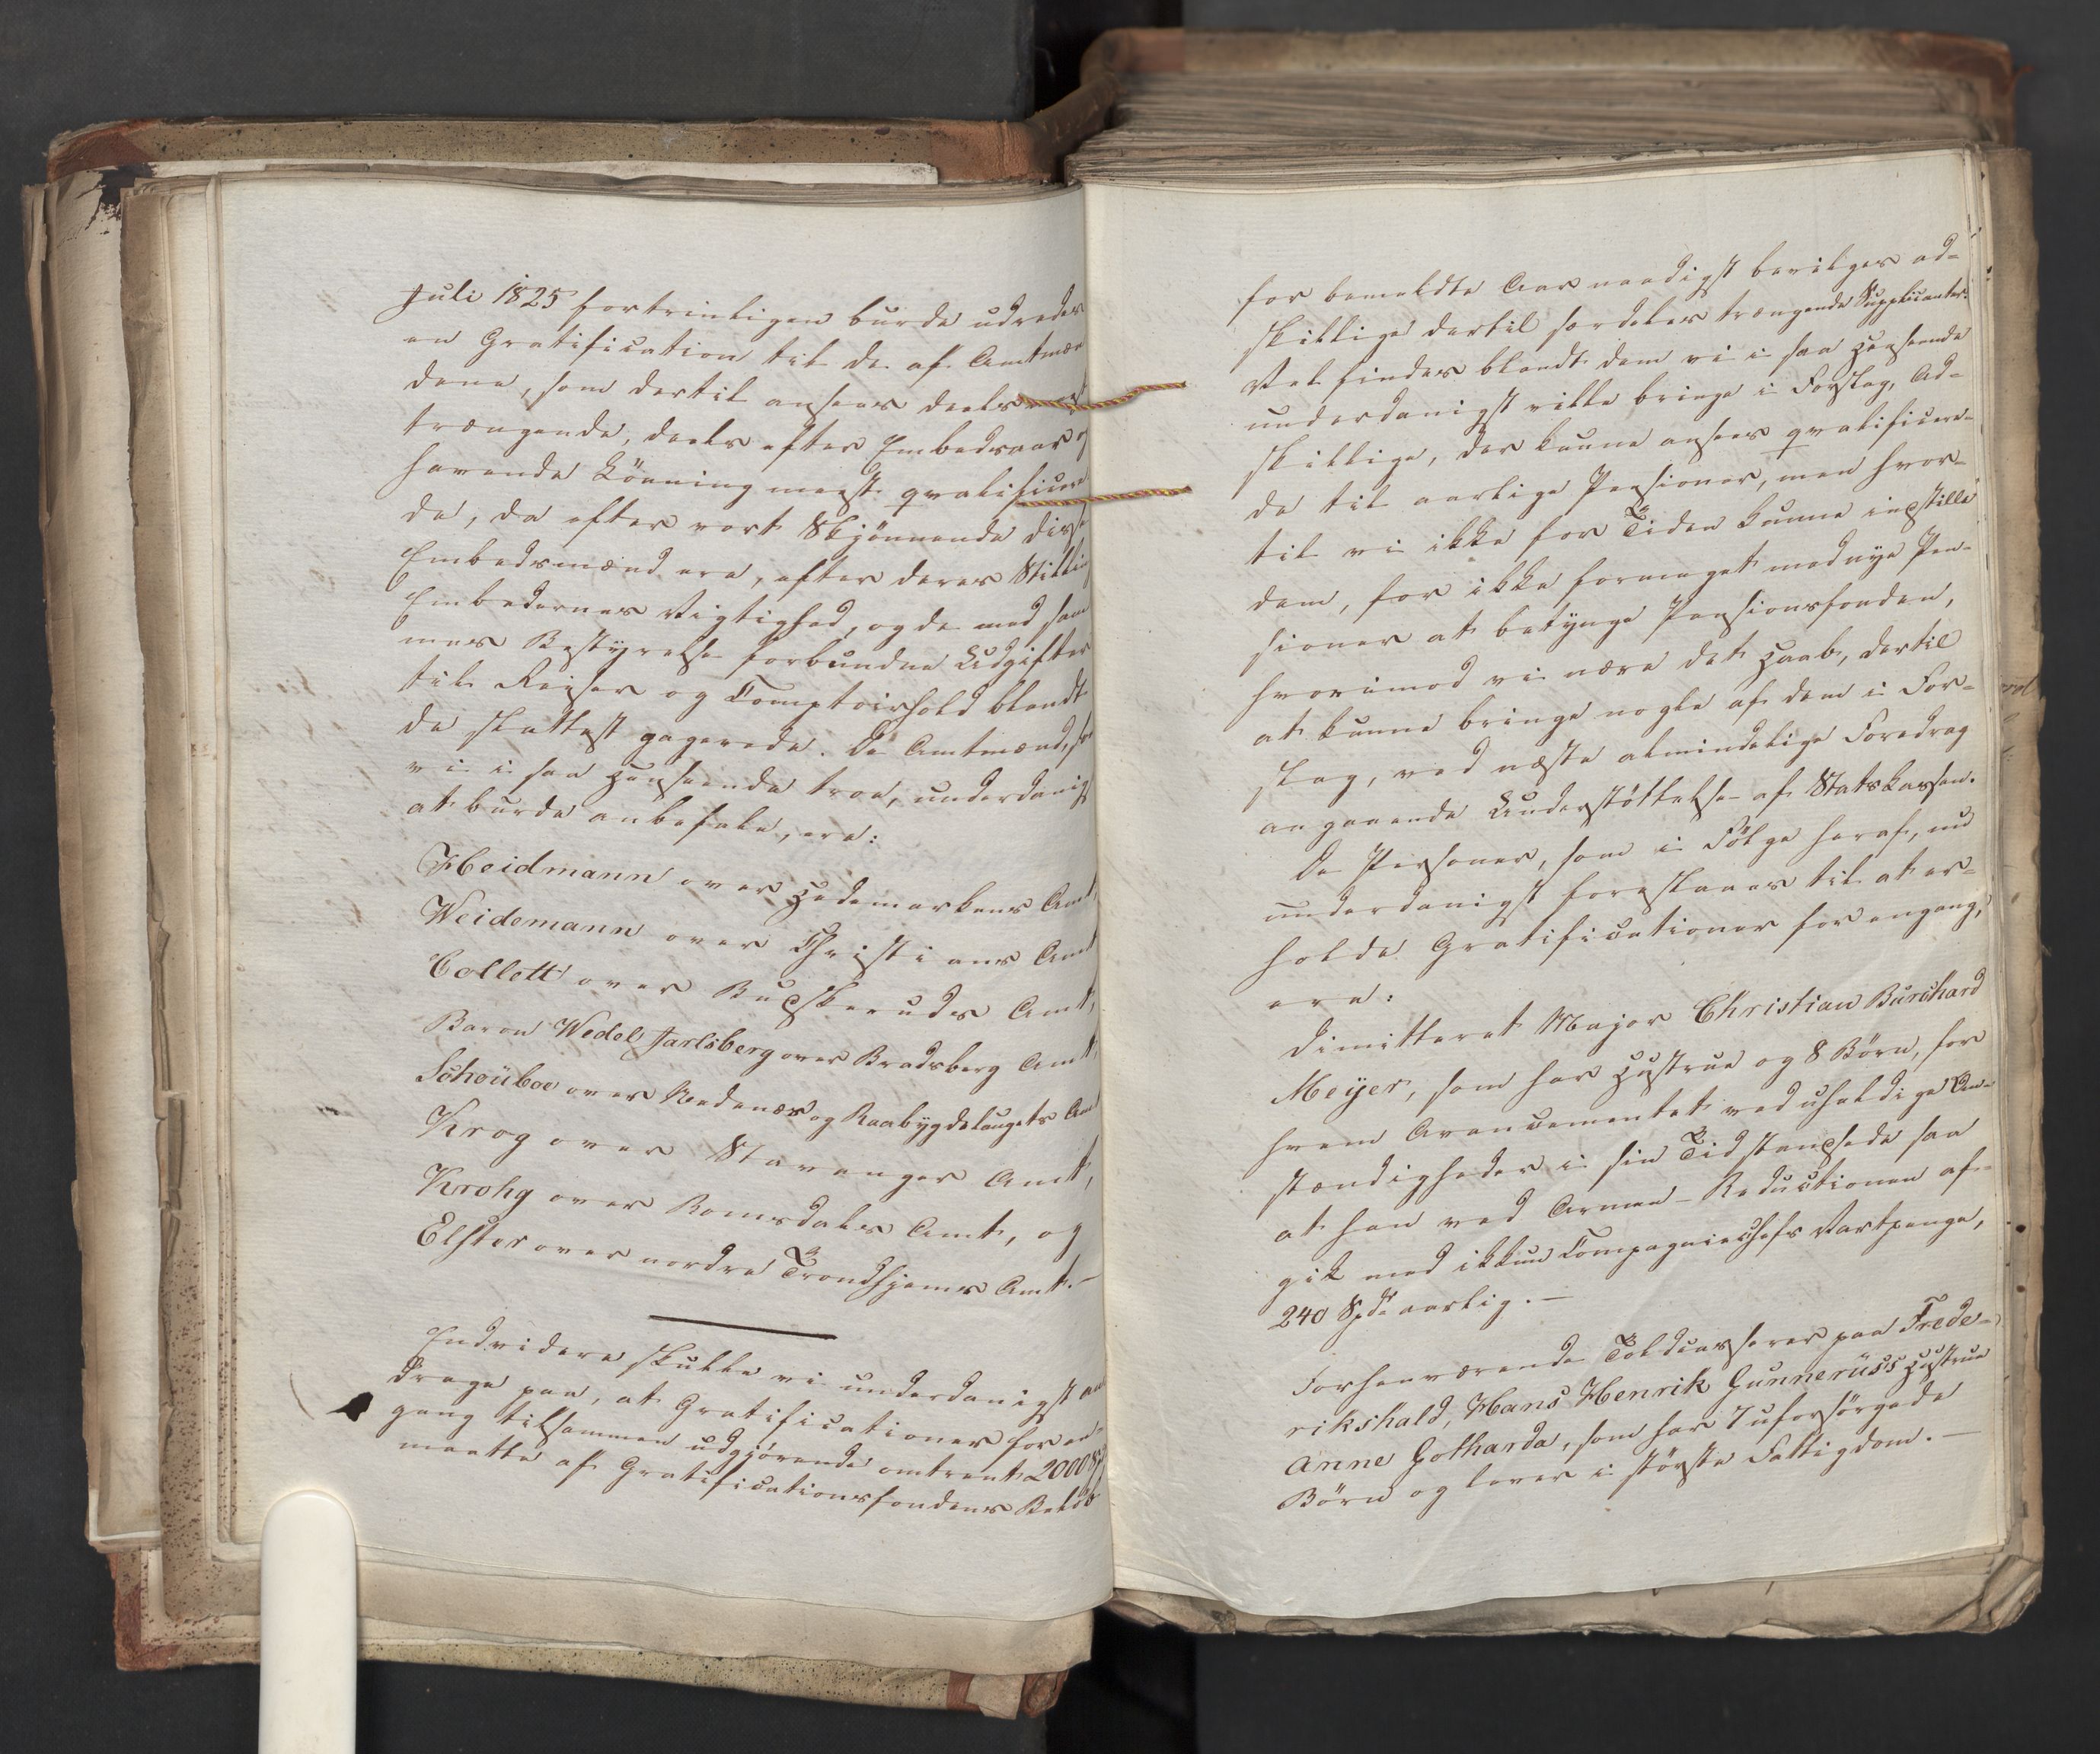 Juli 1825 fortrinligen burde udredes
en Gratification til de af Amtmæn
dene, som dertil ansees deels meest
trængende, deels efter Embedsaar og
havende Lönning meest qvalificere
de, da efter vort Skjönnende disse
Embedsmænd ere, efter deres Stilling
Embedernes Vigtighed, og de med sam
mes Bestyrelse forbundne Udgifter
til Reiser og Comptoirhold blandt
de slettest gagerede. De Amtmænd, som
vi i saa Henseende troe, underdanigst
at burde anbefale, ere:
Heidmann over Hedemarkens Amt,
Weidemann over Christians Amt
Collett over Buskeruds Amt,
Baron Wedel Jarlsberg over Bradsberg Amt,
Schouboe over Nedenæs og Raabygdelaugets Amt
Krog over Stavanger Amt,
Krohg over Romsdals Amt, og
Elster over nordre Trondhjems Amt. —
Endvidere skulle vi underdanigst an
drage paa, at Gratificationer for en-
gang tilsammen udgjørende omtrent 2000 Spd
maatte af Gratificationsfondens Behold
for bemeldte Aar naadigst bevilges ad-
skillige dertil særdeles trængende Supplicanter.
Vel findes blandt dem vi i saa Henseende
underdanigst ville bringe i Forslag, Ad-
skillige, der kunne ansees qvalificere-
de til aarlige Pensioner, men hvor-
til vi ikke for Tiden kunne indstille
dem, for ikke formeget med nye Pen-
sioner at betynge Pensionsfonden,
hvorimod vi nære det Haab, dertil
at kunne bringe nogle af dem i For-
slag, ved næste almindelige Foredrag
angaaende Understøttelse af Statskassen.
De Personer, som i Fölge heraf, nu
underdanigst foreslaaes til at er-
holde Gratificationer for engang,
ere:
Dimitteret Major Christian Burchard
Meyer, som har Hustrue og 8 Børn, for
hvem Avancementet ved uheldige Om-
stændigheder i sin Tid standsede saa
at han ved Armee-Reductionen af-
gik med ikkun Compagniechefs Vartpenge,
240 Spd aarlig. —
Forhenværende Toldcasserer paa Frede-
rikshald, Hans Henrik Gunneruss Hustrue
Anne Gotharda, som har 7 uforsörgede
Börn og lever i störste Fattigdom. —